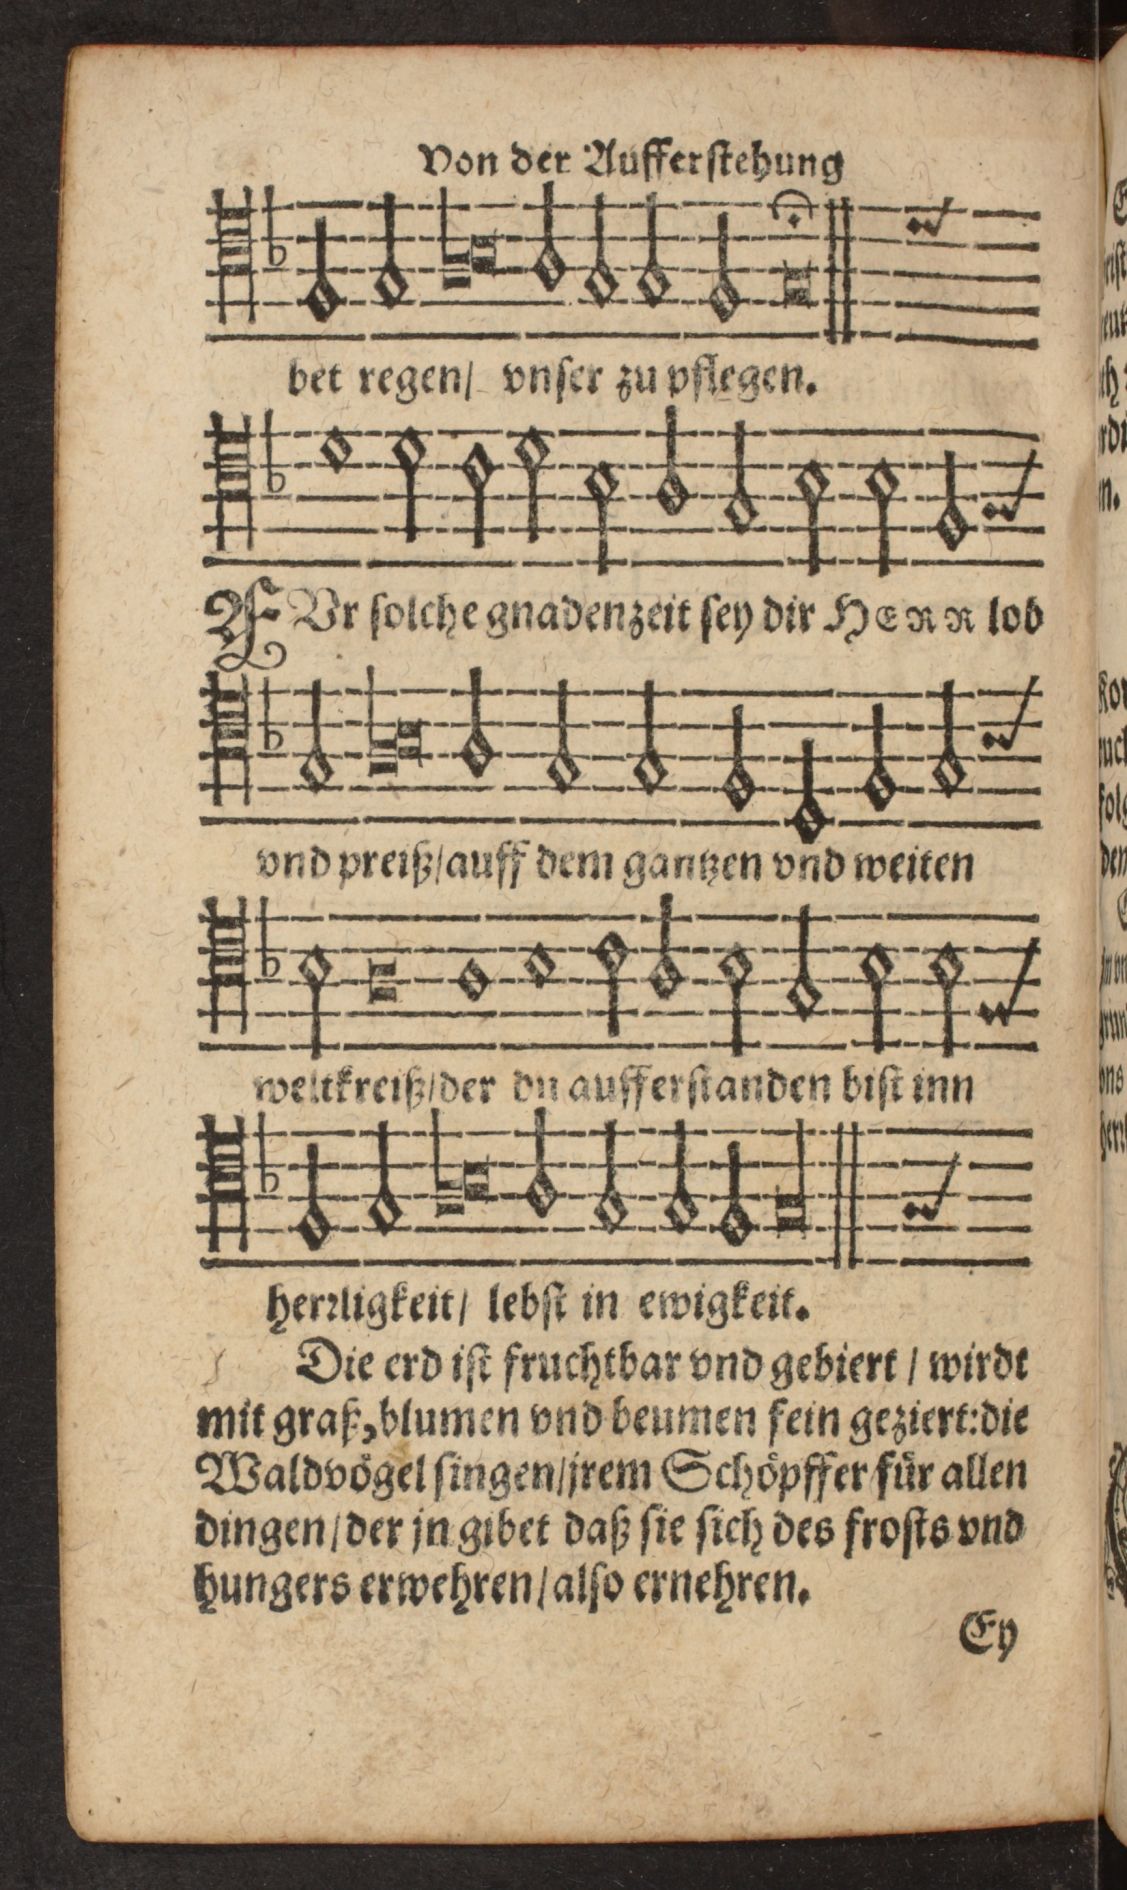 Von der Aufferſtehung
bet regen/ vnſer zu pflegen.
FVr ſolche gnadenzeit ſey dir HERR lob
vnd preiß/auff dem gantzen vnd weiten
weltkreiß/der du aufferſtanden biſt inn
herꝛligkeit/ lebſt in ewigkeit.
Die erd iſt fruchtbar vnd gebiert / wirdt
mit graß, blumen vnd beumen fein geziert: die
Waldvögel ſingen/jrem Schöpffer für allen
dingen/der jn gibet daß ſie ſich des froſts vnd
hungers erwehren/alſo ernehren.
Ey